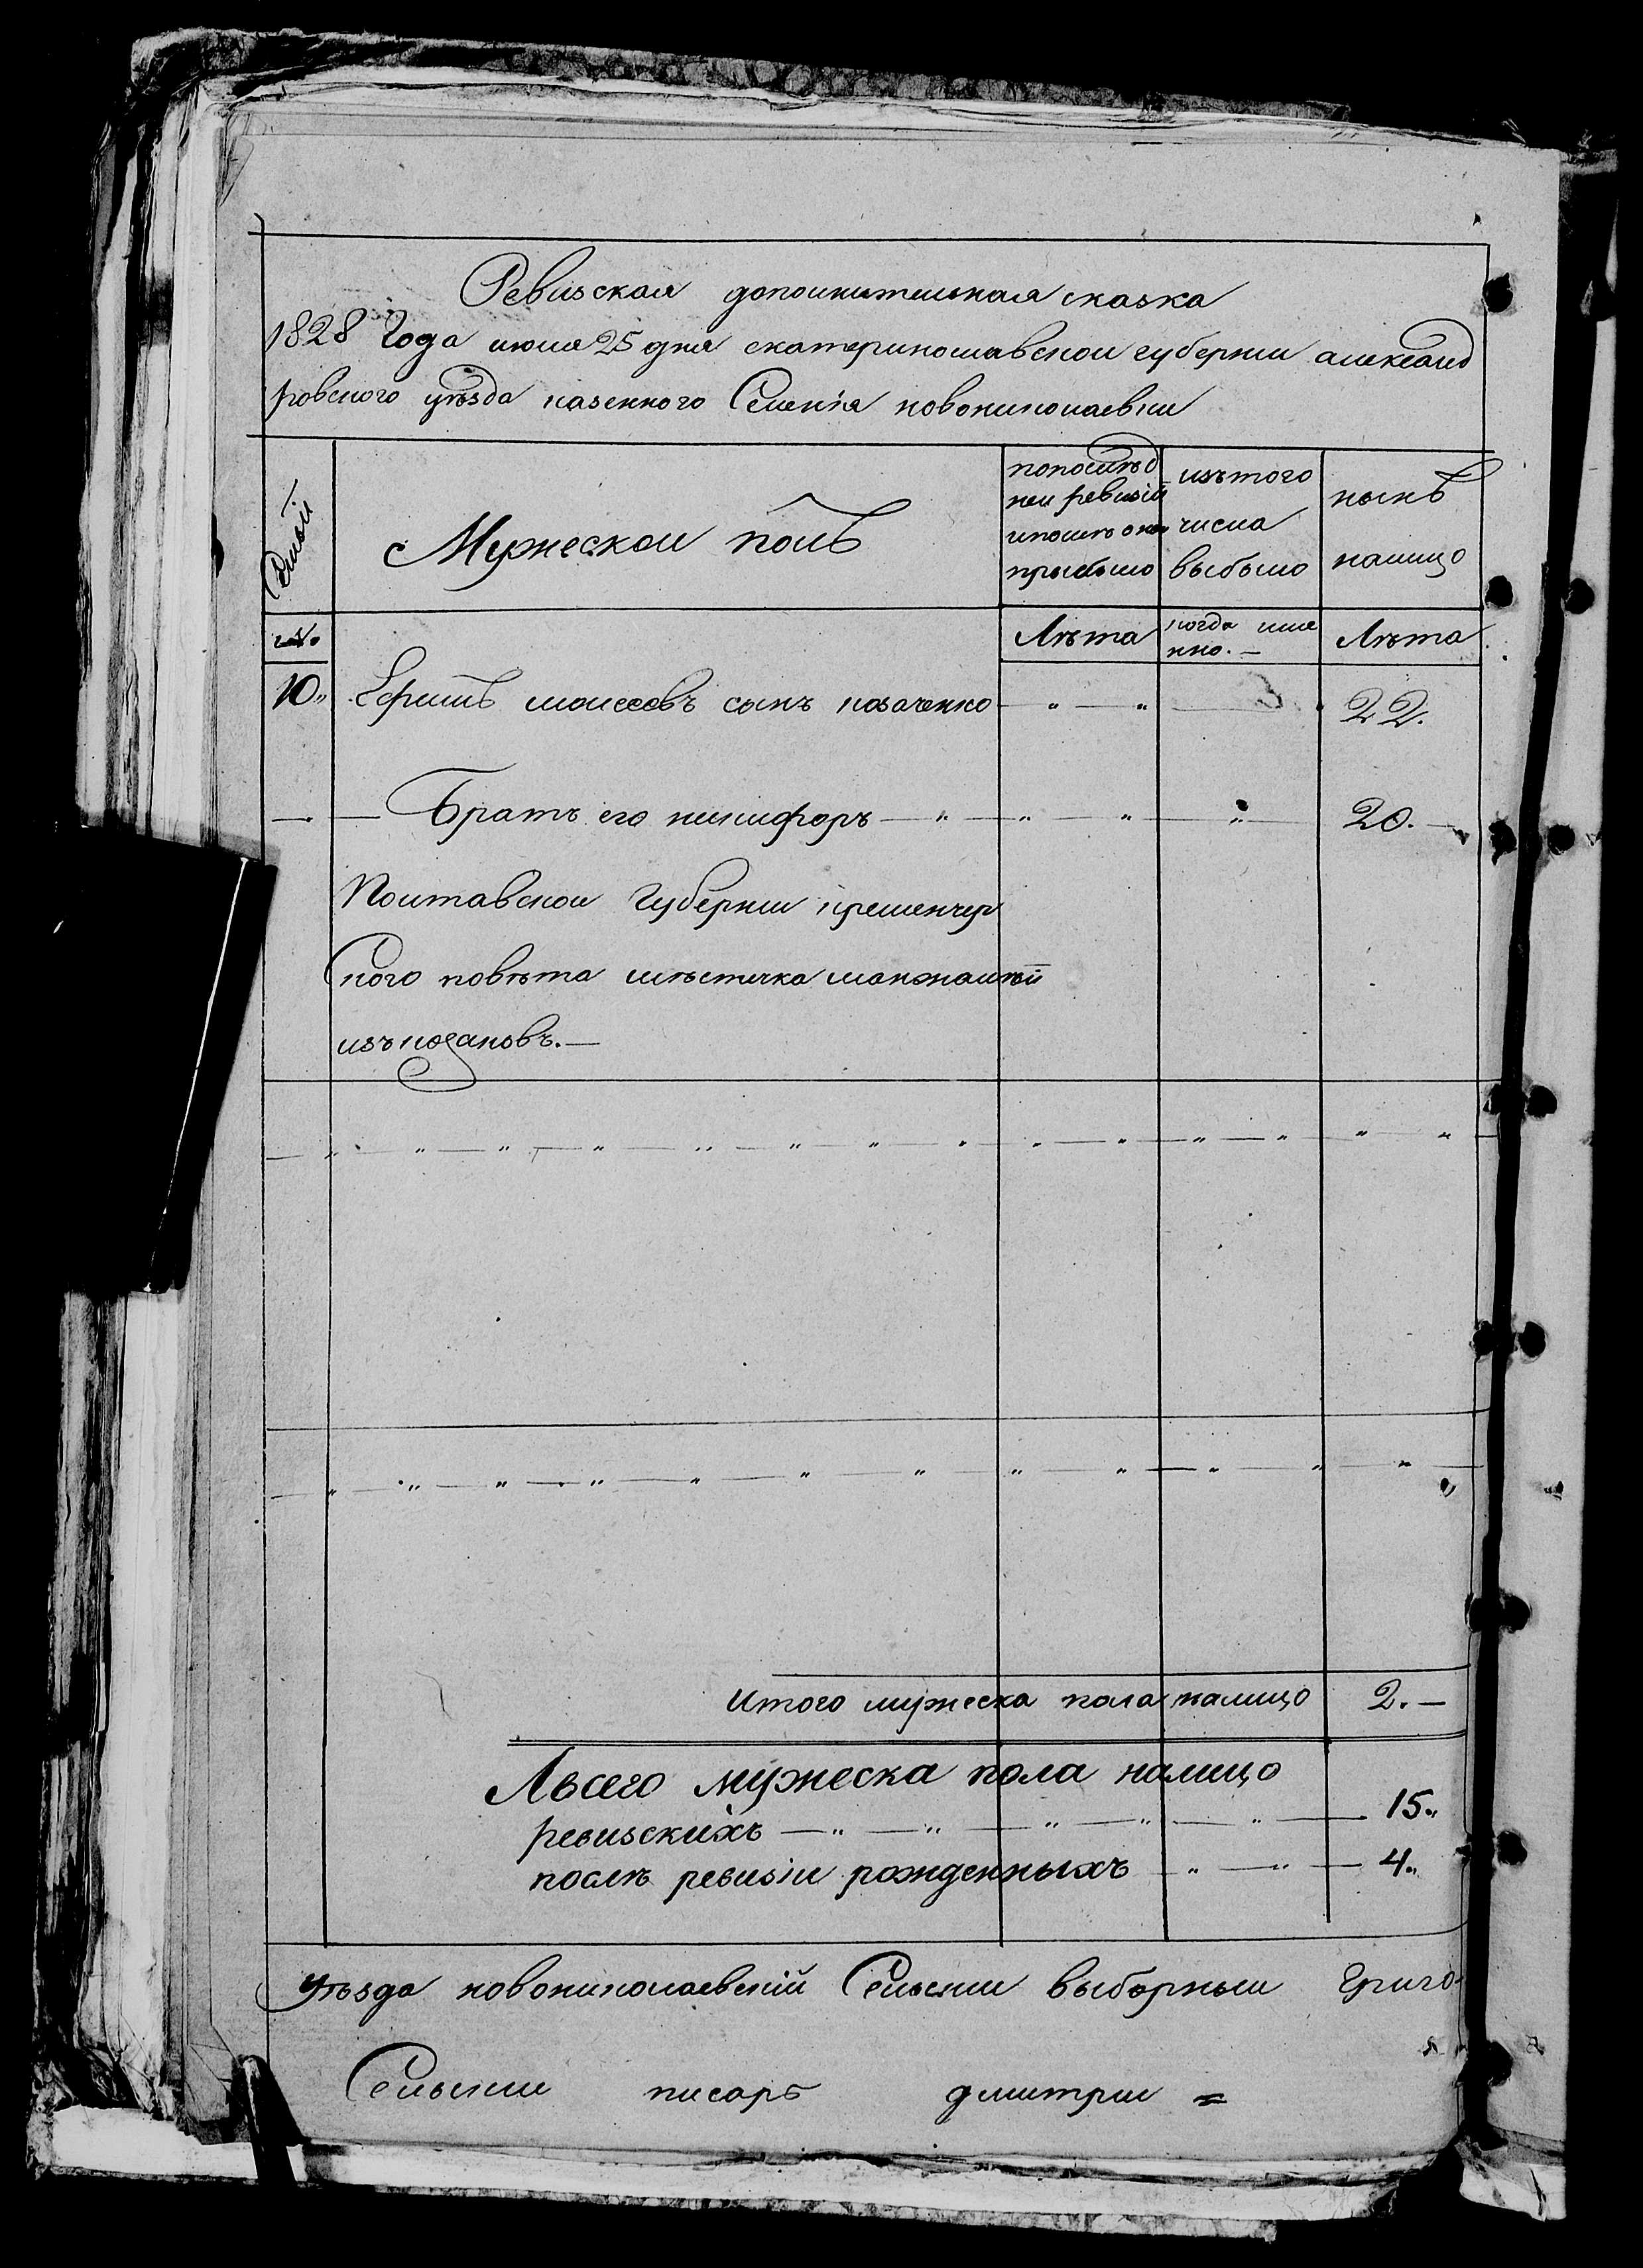 Ревизская дополнительная сказка
1828 Года июля 25 дня екатеринославской губернии александ
ровского уѣзда казенного Селенія новониколаевки
Мужескои полъ
попослѣд
неи ревизіи
ипослѣ онои
прибыло
изътого
числа
выбыло
нынѣ
налицо
Лѣта
когда име
нно. —
Лѣта
10„ Ефимъ моисеевъ сынъ козаченко — „ — „ — 22.
— — Братъ его никифоръ — „ — „ — „ — „ — 20. —
Полтавскои Губернии кременчуг
Ского повѣта мѣстечка манжалѣи
изъ козаковъ. —
Итого мужеска пола налицо 2. —
Авсего мужеска пола налицо
ревизскихъ — „ — „ — „ — „ — „ — 15„
послѣ ревизіи рожденныхъ — „ — „ — 4„
уѣзда новониколаевскій Сельскии выборныи Григо
Сельскии писарь дмитрии =